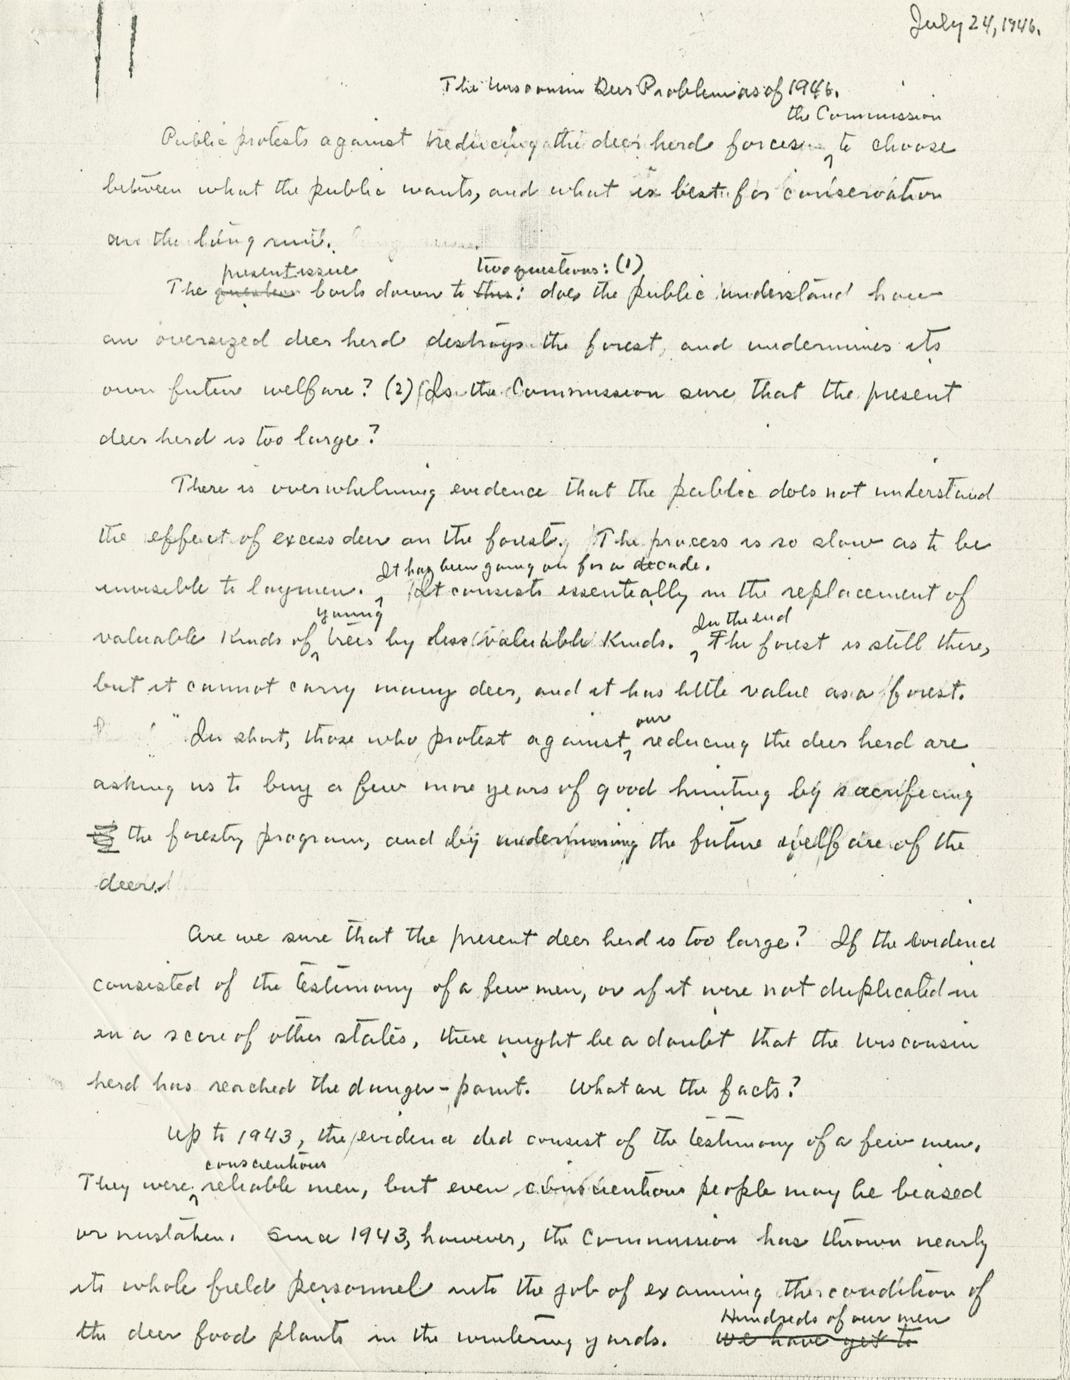 July 24, 1946.
The Wisconsin Deer Problem as of 1946.
the Commission
Public protests against reducing the deer herd forces to choose
between what the public wants, and what is best for conservation
in the long run.
present issue two questions: (1)
The question boils down to this: does the public understand how
an oversized deer herd destroys the forest, and undermines its
own future welfare? (2) Is the Commission sure that the present
deer herd is too large?
There is overwhelming evidence that the public does not understand
the effect of excess deer on the forest. The process is so slow as to be
It has been going on for a decade.
invisible to laymen. It consists essentially in the replacement of
young In the end
valuable kinds of trees by less valuable kinds. The forest is still there,
but it cannot carry many deer, and it has little value as a forest.
our
In short, those who protest against reducing the deer herd are
asking us to buy a few more years of good hunting by sacrificing
the forestry program, and by undermining the future welfare of the
deer.
Are we sure that the present deer herd is too large? If the evidence
consisted of the testimony of a few men, or if it were not duplicated in
in a score of other states, there might be a doubt that the Wisconsin
herd has reached the danger-point. What are the facts?
Up to 1943, the evidence did consist of the testimony of a few men.
conscientious
They were reliable men, but even conscientious people may be biased
or mistaken. Since 1943, however, the Commission has thrown nearly
its whole field personnel into the job of examining the condition of
Hundreds of our men
the deer food plants in the wintering yards. we have yet to